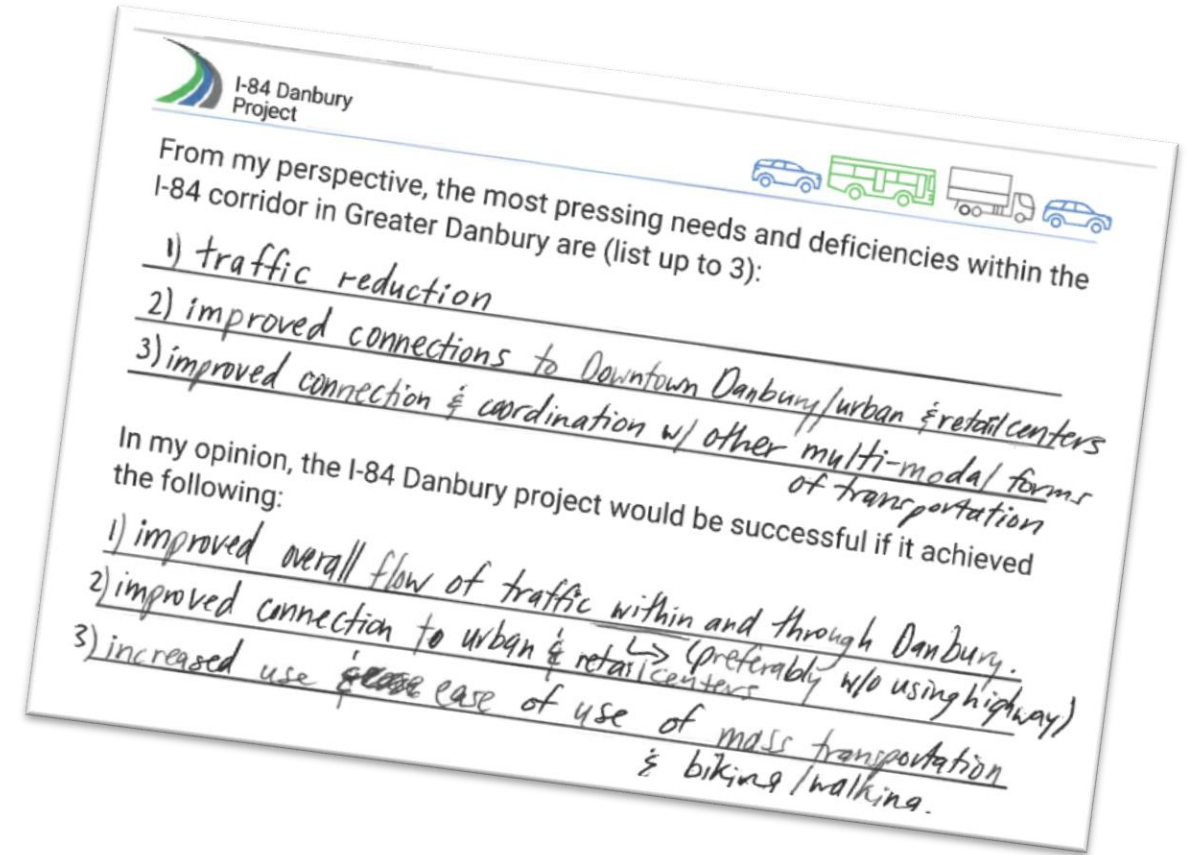 I-84 Danbury
Project
From my perspective, the most pressing needs and deficiencies within the
I-84 corridor in Greater Danbury are (list up to 3):
1) traffic reduction
2) improved connections to Downtown Danbury/urban & retail centers
3) improved connection & coordination w/ other multi-modal forms
of transportation
In my opinion, the I-84 Danbury project would be successful if it achieved
the following:
1) improved overall flow of traffic within and through Danbury.
↳ (preferably w/o using highway)
2) improved connection to urban & retail centers
3) increased use & ease of use of mass transportation
& biking/walking.